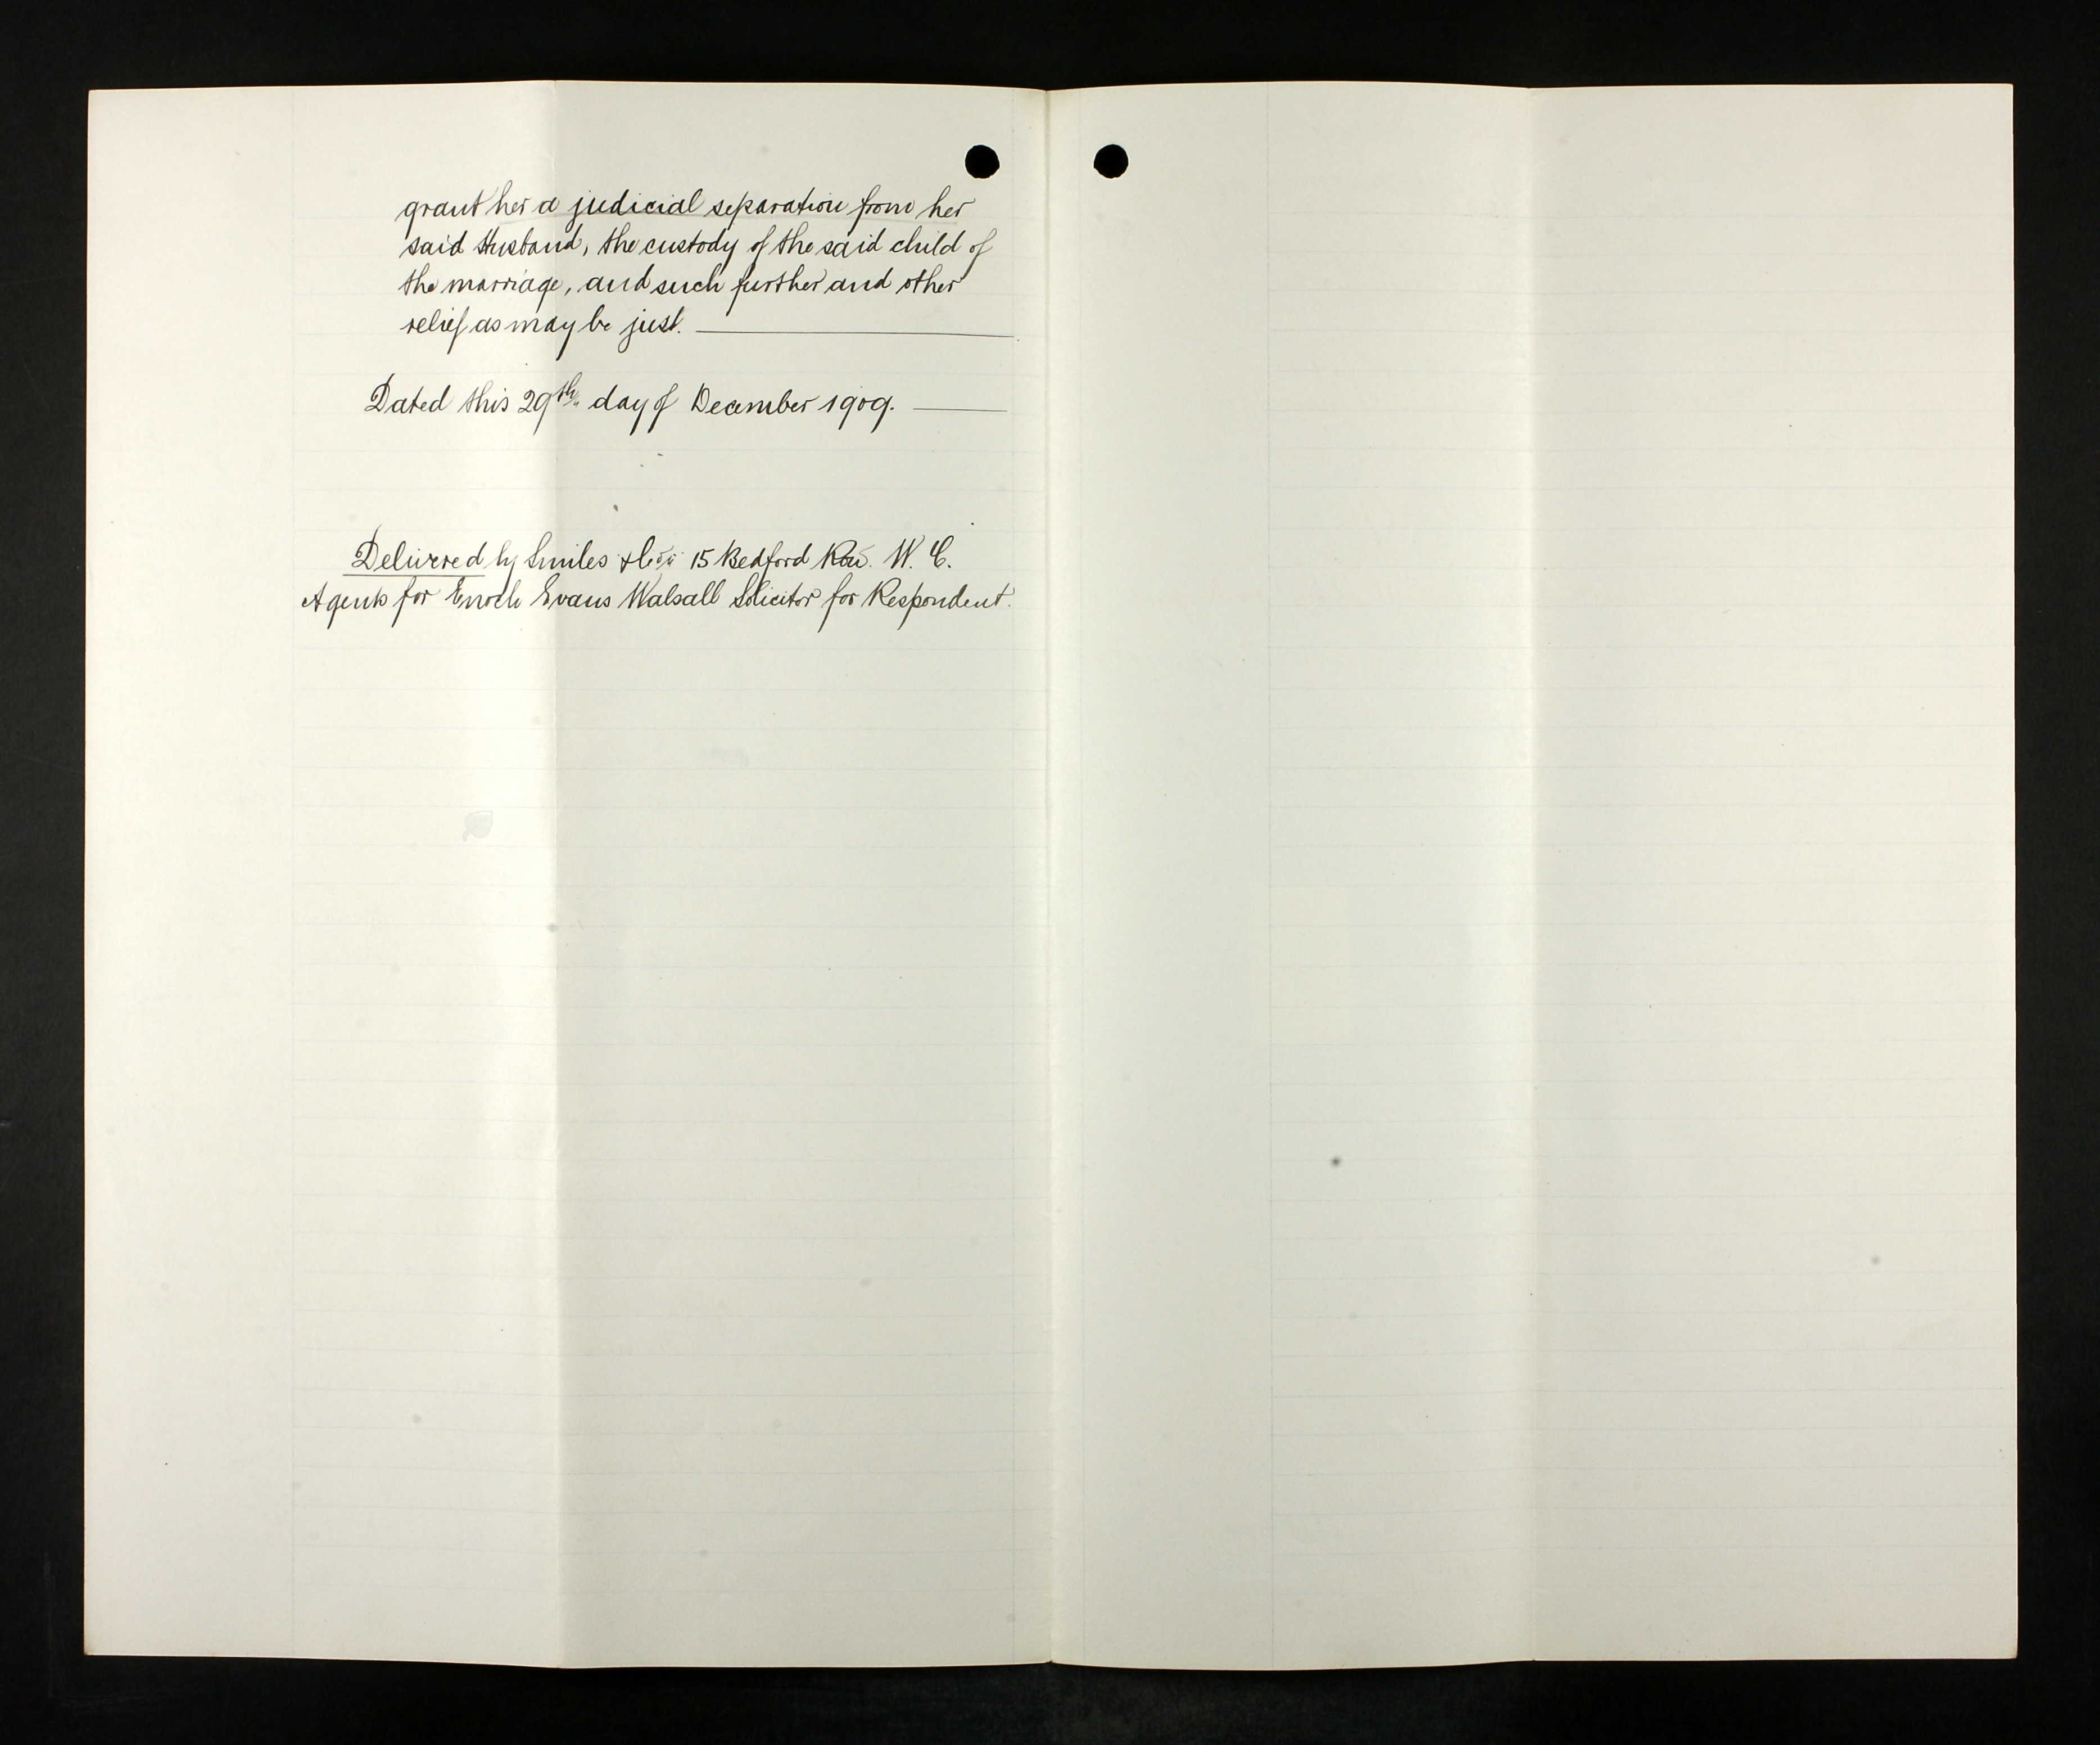 grant her a judicial separation from her
said Husband, the custody of the said child of
the marriage, and such further and other
relief as may be just.
Dated this 29th day of December 1909.
Delivered by Smiles & Co 15 Bedford Row. W. C.
Agents for Enoch Evans Walsall Solicitor for Respondent.